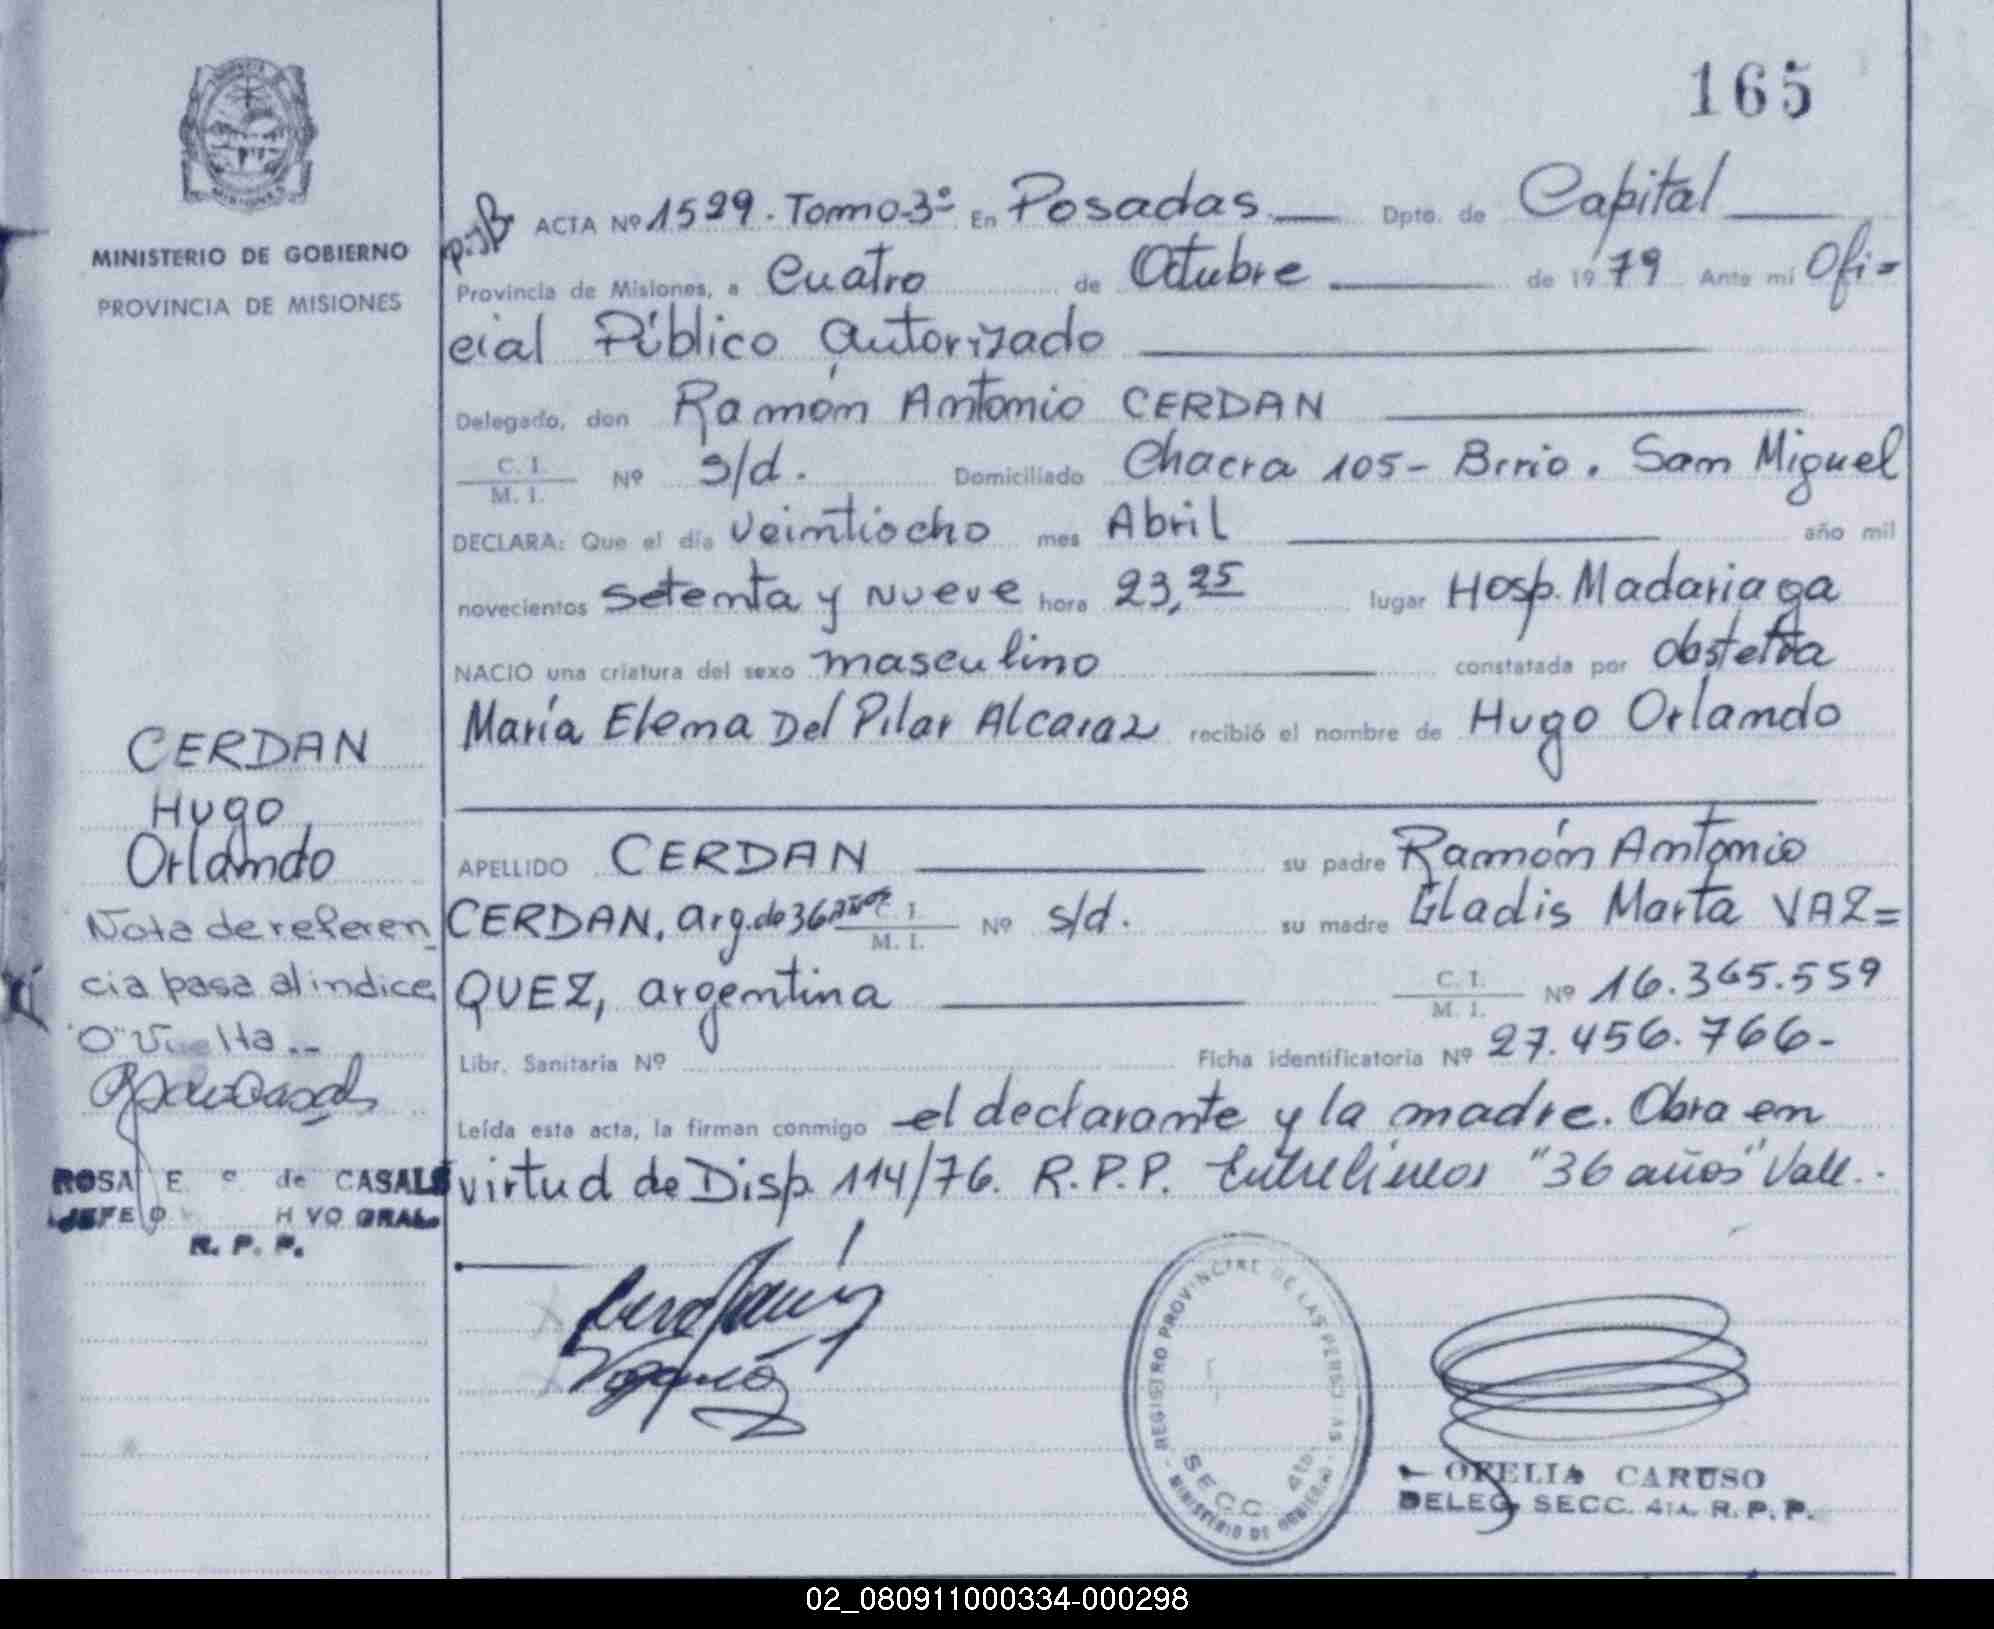 165
MINISTERIO DE GOBIERNO
PROVINCIA DE MISIONES
ACTA Nº 1529. Tomo-3º En Posadas Dpto. de Capital
Provincia de Misiones, a Cuatro de Octubre de 1979 Ante mí Ofi=
cial Público Autorizado
Delegado, don Ramón Antonio CERDAN
C. I.
M. I. Nº s/d. Domiciliado Chacra 105- Brrio. San Miguel
DECLARA: Que el día veintiocho mes Abril año mil
novecientos setenta y nueve hora 23,25 lugar Hosp. Madariaga
NACIO una criatura del sexo masculino constatada por obstetra
María Elena Del Pilar Alcaraz recibió el nombre de Hugo Orlando
APELLIDO CERDAN su padre Ramón Antonio
CERDAN, arg. de 36 años C. I.
M. I. Nº s/d. su madre Gladis Marta VAZ=
QUEZ, argentina C. I.
M. I. Nº 16.365.559
Libr. Sanitaria Nº Ficha identificatoria Nº 27.456.766-
Leída esta acta, la firman conmigo el declarante y la madre. Obra en
virtud de Disp. 114/76. R.P.P. Entrelíneas "36 años" Vale.-
CERDAN
Hugo
Orlando
Nota de referen
cia pasa al indice
"O" Vuelta..-
ROSA E. C. de CASALS
JEFE
GRAL.
R. P. P.
REGISTRO PROVINCIAL DE LAS PERSONAS
SECC. 4ta.
MINISTERIO DE GOBIERNO
OFELIA CARUSO
DELEG. SECC. 4TA. R. P. P.
02_080911000334-000298